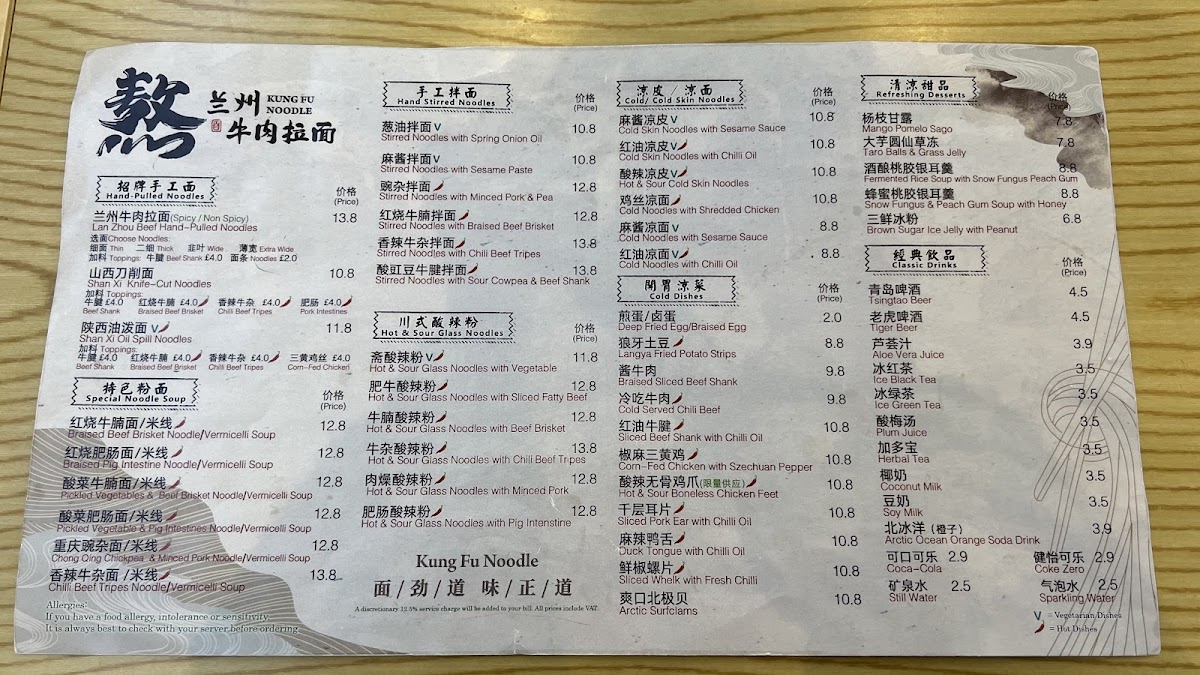 熬
兰州 KUNG FU NOODLE
牛肉拉面
招牌手工面
Hand-Pulled Noodles
价格
(Price)
兰州牛肉拉面(Spicy / Non Spicy) 13.8
Lan Zhou Beef Hand-Pulled Noodles
选面Choose Noodles:
细面 Thin 二细 Thick 韭叶 Wide 薄宽 Extra Wide
加料 Toppings: 牛腱 Beef Shank £4.0 面条 Noodles £2.0
山西刀削面 10.8
Shan Xi Knife-Cut Noodles
加料 Toppings:
牛腱 £4.0 红烧牛腩 £4.0 香辣牛杂 £4.0 肥肠 £4.0
Beef Shank Braised Beef Brisket Chilli Beef Tripes Pork Intestines
陕西油泼面 V 11.8
Shan Xi Oil Spill Noodles
加料 Toppings:
牛腱 £4.0 红烧牛腩 £4.0 香辣牛杂 £4.0 三黄鸡丝 £4.0
Beef Shank Braised Beef Brisket Chilli Beef Tripes Corn-Fed Chicken
特色粉面
Special Noodle Soup
价格
(Price)
红烧牛腩面/米线 12.8
Braised Beef Brisket Noodle/Vermicelli Soup
红烧肥肠面/米线 12.8
Braised Pig Intestine Noodle/Vermicelli Soup
酸菜牛腩面/米线 12.8
Pickled Vegetables & Beef Brisket Noodle/Vermicelli Soup
酸菜肥肠面/米线 12.8
Pickled Vegetable & Pig Intestines Noodle/Vermicelli Soup
重庆豌杂面/米线 12.8
Chong Qing Chickpea & Minced Pork Noodle/Vermicelli Soup
香辣牛杂面/米线 13.8
Chilli Beef Tripes Noodle/Vermicelli Soup
Allergies:
If you have a food allergy, intolerance or sensitivity.
It is always best to check with your server before ordering.
手工拌面
Hand Stirred Noodles
价格
(Price)
葱油拌面 V 10.8
Stirred Noodles with Spring Onion Oil
麻酱拌面 V 10.8
Stirred Noodles with Sesame Paste
豌杂拌面 12.8
Stirred Noodles with Minced Pork & Pea
红烧牛腩拌面 12.8
Stirred Noodles with Braised Beef Brisket
香辣牛杂拌面 13.8
Stirred Noodles with Chilli Beef Tripes
酸豇豆牛腱拌面 13.8
Stirred Noodles with Sour Cowpea & Beef Shank
川式酸辣粉
Hot & Sour Glass Noodles
价格
(Price)
斋酸辣粉 V 11.8
Hot & Sour Glass Noodles with Vegetable
肥牛酸辣粉 12.8
Hot & Sour Glass Noodles with Sliced Fatty Beef
牛腩酸辣粉 12.8
Hot & Sour Glass Noodles with Beef Brisket
牛杂酸辣粉 13.8
Hot & Sour Glass Noodles with Chilli Beef Tripes
肉燥酸辣粉 12.8
Hot & Sour Glass Noodles with Minced Pork
肥肠酸辣粉 12.8
Hot & Sour Glass Noodles with Pig Intenstine
Kung Fu Noodle
面/劲/道 味/正/道
A discretionary 12.5% service charge will be added to your bill. All prices include VAT.
凉皮/凉面
Cold/ Cold Skin Noodles
价格
(Price)
麻酱凉皮 V 10.8
Cold Skin Noodles with Sesame Sauce
红油凉皮 V 10.8
Cold Skin Noodles with Chilli Oil
酸辣凉皮 V 10.8
Hot & Sour Cold Skin Noodles
鸡丝凉面 10.8
Cold Noodles with Shredded Chicken
麻酱凉面 V 8.8
Cold Noodles with Sesame Sauce
红油凉面 V 8.8
Cold Noodles with Chilli Oil
開胃涼菜
Cold Dishes
价格
(Price)
煎蛋/卤蛋 2.0
Deep Fried Egg/Braised Egg
狼牙土豆 8.8
Langya Fried Potato Strips
酱牛肉 9.8
Braised Sliced Beef Shank
冷吃牛肉 9.8
Cold Served Chili Beef
红油牛腱 10.8
Sliced Beef Shank with Chilli Oil
椒麻三黄鸡 10.8
Corn-Fed Chicken with Szechuan Pepper
酸辣无骨鸡爪(限量供应) 10.8
Hot & Sour Boneless Chicken Feet
千层耳片 10.8
Sliced Pork Ear with Chilli Oil
麻辣鸭舌 10.8
Duck Tongue with Chilli Oil
鲜椒螺片 10.8
Sliced Whelk with Fresh Chilli
爽口北极贝 10.8
Arctic Surfclams
清凉甜品
Refreshing Desserts
价格
(Price)
杨枝甘露 7.8
Mango Pomelo Sago
大芋圆仙草冻 7.8
Taro Balls & Grass Jelly
酒酿桃胶银耳羹 8.8
Fermented Rice Soup with Snow Fungus Peach Gum
蜂蜜桃胶银耳羹 8.8
Snow Fungus & Peach Gum Soup with Honey
三鲜冰粉 6.8
Brown Sugar Ice Jelly with Peanut
經典飲品
Classic Drinks
价格
(Price)
青岛啤酒 4.5
Tsingtao Beer
老虎啤酒 4.5
Tiger Beer
芦荟汁 3.9
Aloe Vera Juice
冰红茶 3.5
Ice Black Tea
冰绿茶 3.5
Ice Green Tea
酸梅汤 3.5
Plum Juice
加多宝 3.5
Herbal Tea
椰奶 3.5
Coconut Milk
豆奶 3.5
Soy Milk
北冰洋（橙子） 3.9
Arctic Ocean Orange Soda Drink
可口可乐 2.9 健怡可乐 2.9
Coca-Cola Coke Zero
矿泉水 2.5 气泡水 2.5
Still Water Sparkling Water
V = Vegetarian Dishes
= Hot Dishes